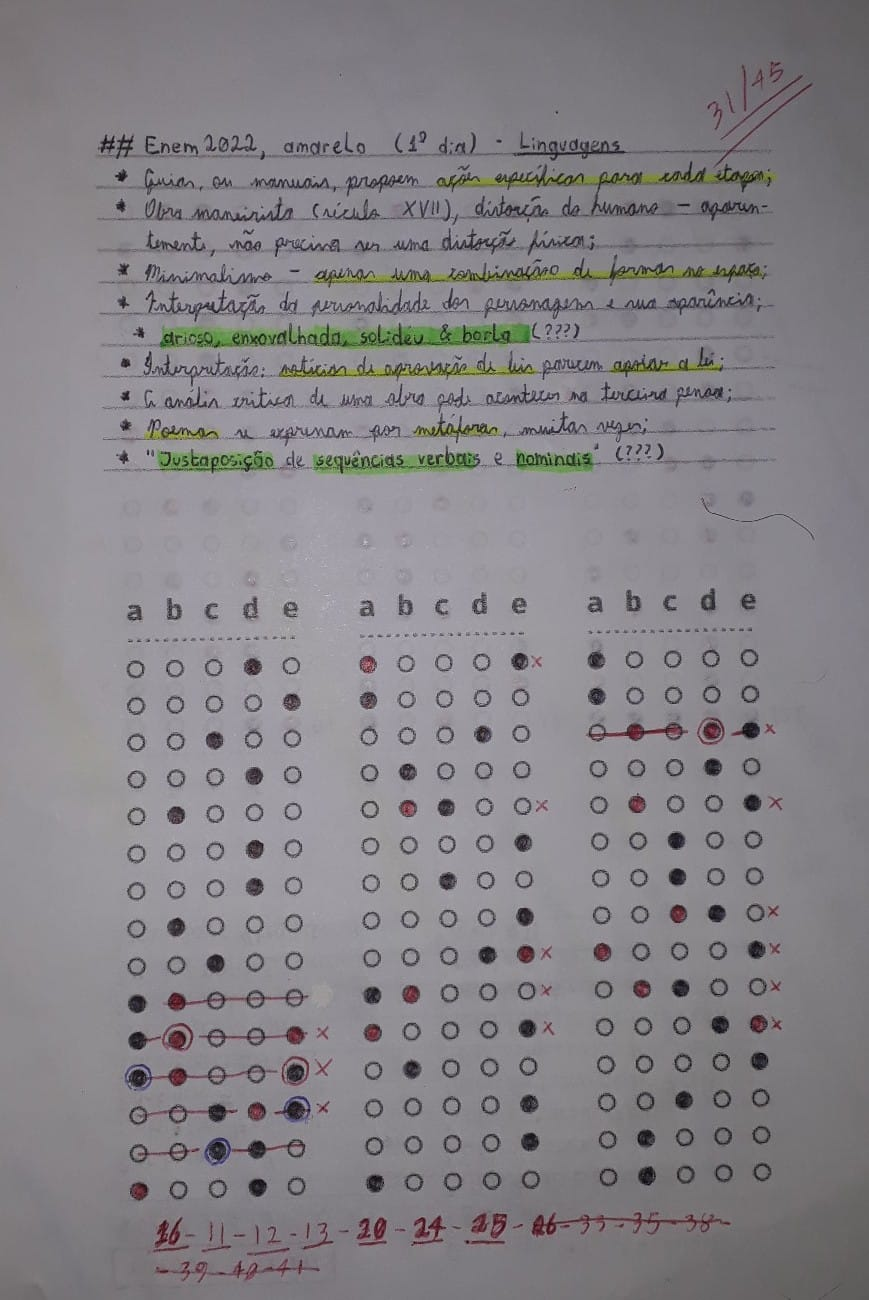 31/45
## Enem 2022, amarelo (1º dia) - Linguagens
* Guias, ou manuais, propoem ações específicas para cada etapa;
* Obra maneirista (século XVII), distorção do humano - aparen-
temente, não precisa ser uma distorção física;
* Minimalismo - apenas uma combinação de formas no espaço;
* Interpretação da personalidade dos personagens e sua aparência;
* arioso, enxovalhada, solidéu & borla (???)
* Interpretação: notícias de aprovação de leis parecem apoiar a lei;
* A análise crítica de uma obra pode acontecer na terceira pessoa;
* Poemas se expressam por metáforas, muitas vezes;
* "Justaposição de sequências verbais e nominais" (???)
a b c d e a b c d e a b c d e
16 - 11 - 12 - 13 - 20 - 24 - 25 - 26 - 33 - 35 - 38 -
- 39 - 40 - 41